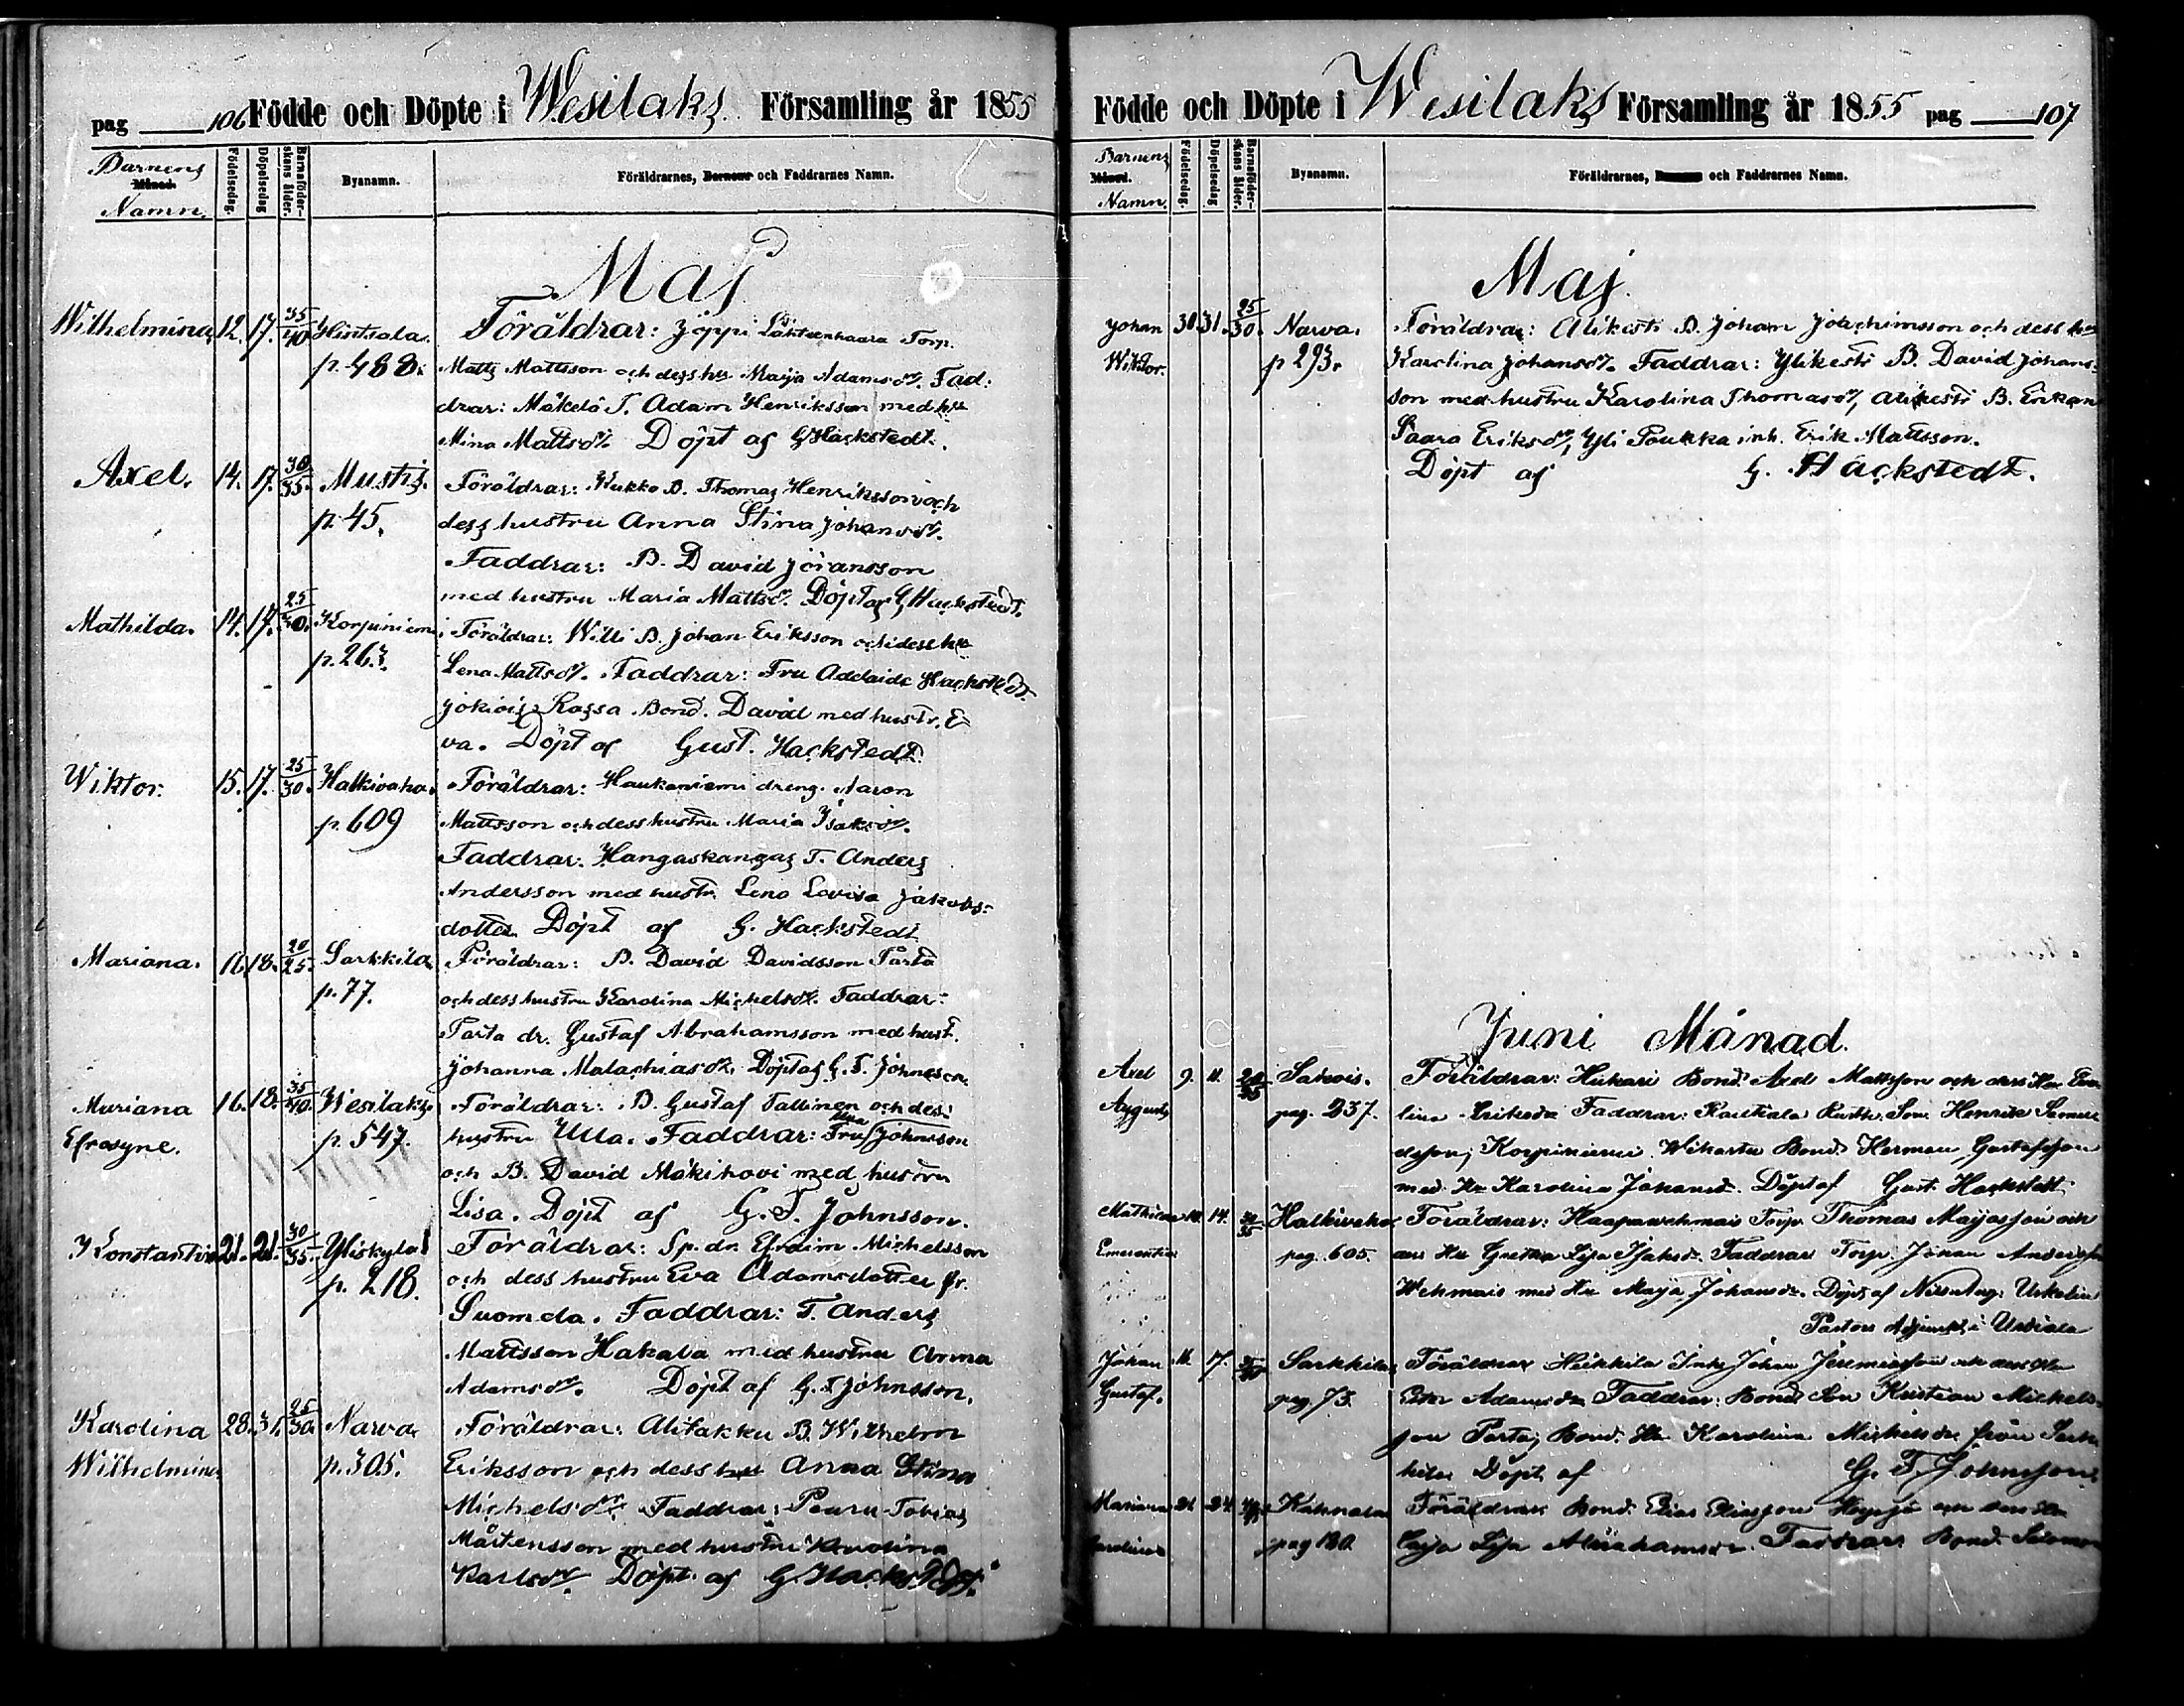 pag 106 Födde och Döpte i Wesilaks Församling år 1855
Barnens
Månad.
Namn.
Födelsedag.
Döpelsedag
Barnaföder-
skans ålder.
Byanamn.
Föräldrarnes, Barnens och Faddrarnes Namn.
Maj
Wilhelmina 12. 17. 35/40 Hintsala. Föräldrar: Jöppi Lähteenhaara Torp.
p. 488. Matts Mattsson och dess hu Maija Adamsdr. Fad-
drar: Mäkelä T. Adam Henriksson med hu
Mina Mattsdr. Döpt af G Hackstedt.
Axel. 14. 17. 30/35. Mustis. Föräldrar: Kukko B. Thomas Henriksson och
p. 45. dess hustru Anna Stina Johansdr.
Faddrar: B. David Jöransson
med hustru Maria Mattsdr. Döpt af G Hackstedt.
Mathilda. 14. 17. 25/30. Korpiniemi. Föräldrar: Willi B. Johan Eriksson och dess hu
p. 263. Lena Mattsdr. Faddrar: Fru Adelaide Hackstedt
Jokiois Rassa Bond. David med hustr. E-
va. Döpt af Gust. Hackstedt.
Wiktor. 15. 17. 25/30. Halkivaha. Föräldrar: Haukaniemi dreng. Aaron
p. 609 Mattsson och dess hustru Maria Isaksdr.
Faddrar: Hangaskangas T. Anders
Andersson med hustr. Lena Lovisa Jakobs-
dotter Döpt af G. Hackstedt
Mariana. 16. 18. 20/25. Sarkkila. Föräldrar: B. David Davidsson Parta
p. 77. och dess hustru Karolina Michelsdr. Faddrar:
Parta dr. Gustaf Abrahamsson med hust.
Johanna Malachiasdr. Döpt af G. T. Johnsson.
Mariana 16. 18. 35/40. Wesilaks. Föräldrar: B. Gustaf Tallinen och dess
Efrosyne. p. 547. hustru Ulla. Faddrar: Fru Johnsson
och B. David Mäkihovi med hustru
Lisa. Döpt af G. T. Johnsson.
Konstantin 21. 21. 30/35. Yliskylä Föräldrar: Sp. dr. Efraim Michelsson
p. 218. och dess hustru Eva Adamsdotter fr.
Suomela. Faddrar: T. Anders
Mattsson Hakala med hustru Anna
Adamsdr. Döpt af G. T Johnsson.
Karolina 28. 31. 25/30. Narva. Föräldrar: Alitakku B. Wilhelm
Wilhelmina p. 305. Eriksson och dess hu Anna Stina
Michelsdr. Faddrar: Pouru Tobias
Mårtensson med hustru Karolina
Karlsdr. Döpt af G. Hackstedt.
Födde och Döpte i Wesilaks Församling år 1855 pag 107
Barnens
Månad.
Namn.
Födelsedag.
Döpelsedag
Barnaföder-
skans ålder.
Byanamn.
Föräldrarnes, Barnens och Faddrarnes Namn.
Maj.
Johan 30. 31. 25/30. Narva. Föräldrar: Alikesti B. Johan Joachimsson och dess hu
Wiktor. p 293. Karolina Johansdr. Faddrar: Ylikesti B. David Johans-
son med hustru Karolina Thomasdr, Alikesti B. Enkan
Saara Eriksdr, Yli Poukka inh. Erik Mattsson.
Döpt af G. Hackstedt.
Juni Månad.
Axel 9. 11. Sakois. Föräldrar: Hukari Bond. Axel Mattsson och dess Hu
August pag. 237. Eriksdr Faddrar: Henrik
Korpiniemi Wikastu Bond. Herman Gustafsson
med Hu Karolina Johansd. Döpt af Gust. Hackstedt.
Mathilda 10. 14. 30/35 Halkivaha Föräldrar: Haapawehmais Torp. Thomas Mayasson och
Emerentia pag. 605. dess Hu Gretha Lisa Isaksdr. Faddrar Torp. Johan Andersson
Wehmais med Hu Maja Johansdr. Döpt af Nils Aug:
Pastors Adjunkt i Urdiala
Johan 11. 17. Sarkkila Föräldrar Heikkilä Inh. Johan Jeremiasson och dess Hu
Gustaf. pag. 73. Adamsdr Faddrar: Bond. Son Kristian Mickels-
son Parta; Bond. Hu Karolina Mickelsdr från Sark-
kila Döpt af G. T. Johnsson.
Mariana 21. 24. Kahnala Föräldrar Bond. Elias Eliasson och dess Hu
Karolina pag 180. Caja Lisa Abrahamsdr. Faddrar Bond. Salomon